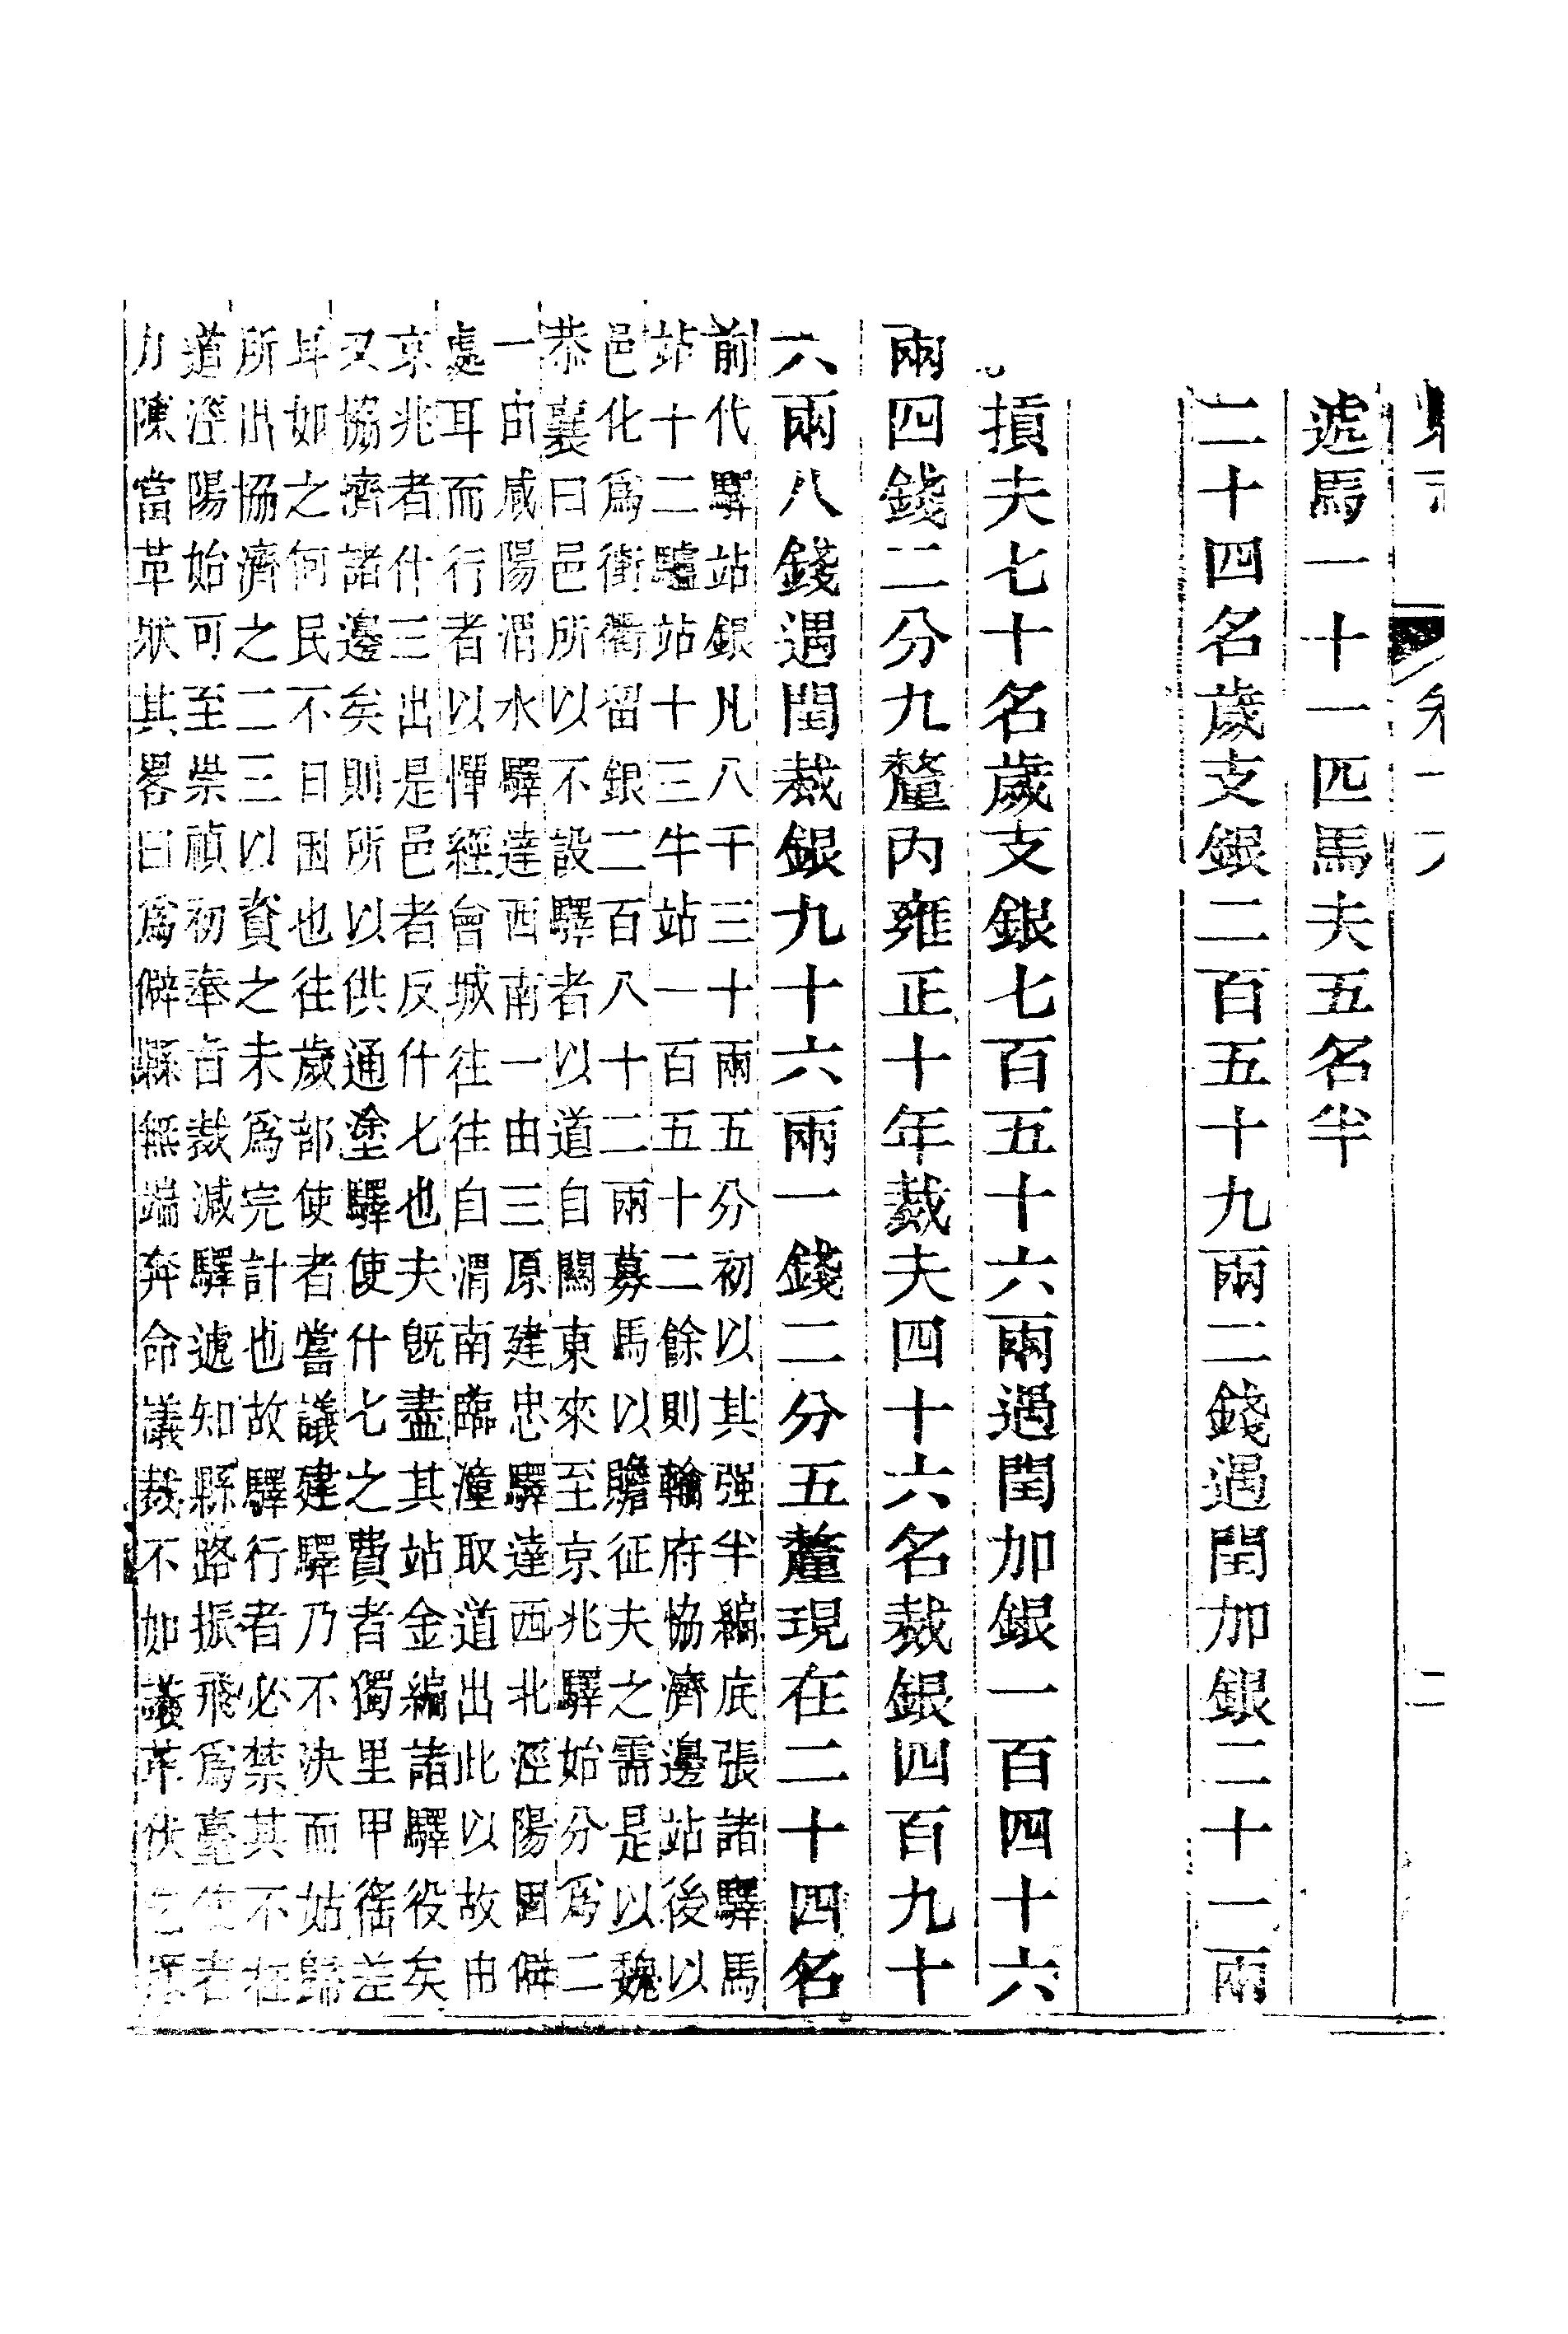 二
遞馬一十一匹馬夫五名半
二十四名歲支銀二百五十九兩二錢遇閏加銀二十一兩
摃夫七十名歲支銀七百五十六兩遇閏加銀一百四十六
兩四錢二分九釐內雍正十年裁夫四十六名裁銀四百九十
六兩八錢遇閏裁銀九十六兩一錢二分五釐現在二十四名
前代驛站銀凡八千三十兩五分初以其强半編底張諸驛馬
站十二驢站十三牛站一百五十二餘則輸府協濟邊站後以
邑化爲衝衢留銀二百八十二兩募馬以贍征夫之需是以魏
恭襄曰邑所以不設驛者以道自關東來至京兆驛始分爲二
一由咸陽渭水驛達西南一由三原建忠驛達西北涇陽固僻
處耳而行者以憚經會城往往自渭南臨潼取道出此以故由
京兆者什三出是邑者反什七也夫旣盡其站金編諸驛役矣
又協濟諸邊矣則所以供通塗驛使什七之費者獨里甲徭差
耳如之何民不日困也往歲部使者嘗議建驛乃不決而姑歸
所出協濟之二三以資之未爲完計也故驛行者必禁其不在
道涇陽始可至崇禎初奉旨裁減驛遞知縣路振飛爲臺使者
力陳當革狀其畧曰爲僻縣無端奔命議裁不如議革伏乞